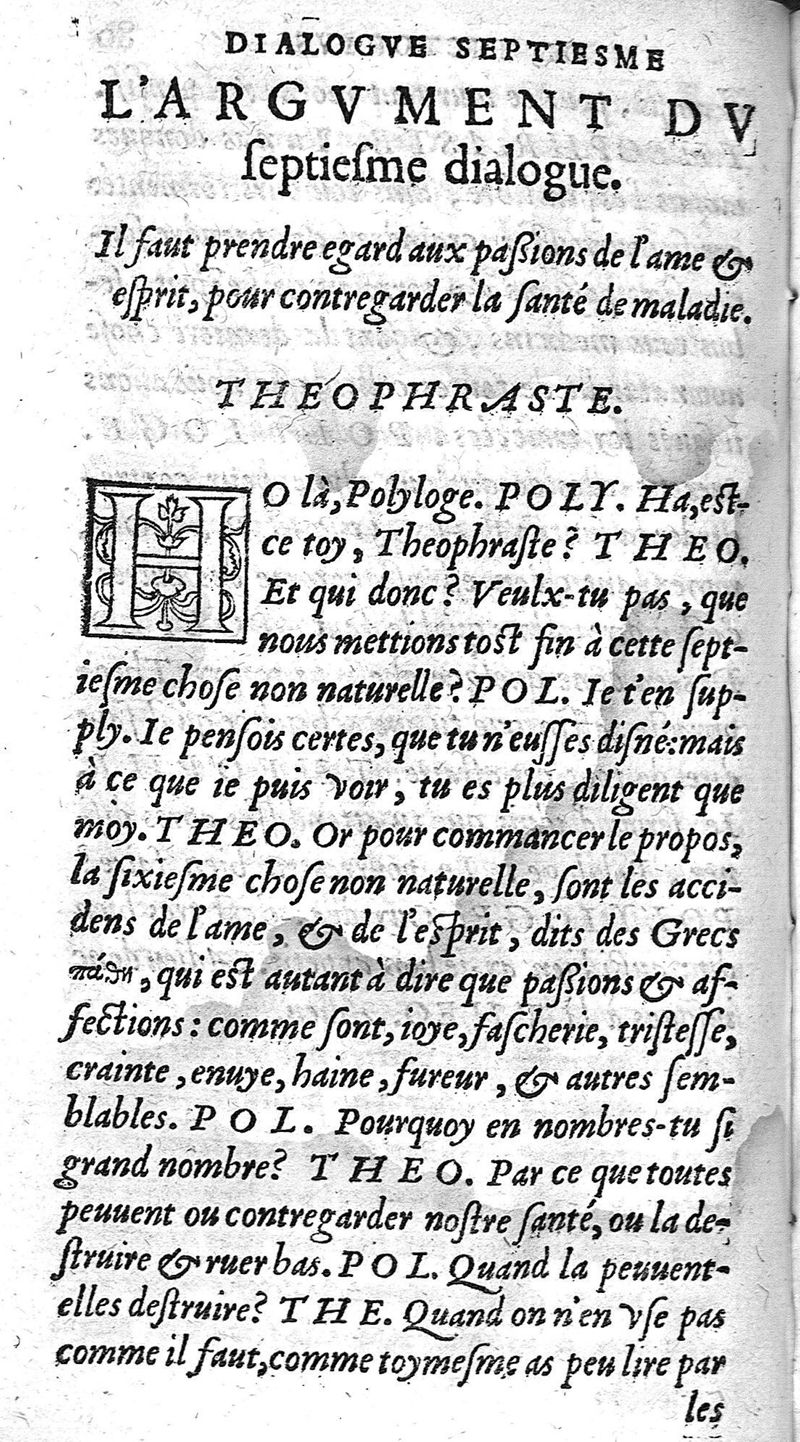 DIALOGVE SEPTIESME
L'ARGVMENT DV
ſeptieſme dialogue.
Il faut prendre egard aux paßions de l'ame &
eſprit, pour contregarder la ſanté de maladie.
THEOPHRASTE.
HO là, Polyloge. POLY. Ha, eſt-
ce toy, Theophraſte? THEO.
Et qui donc? Veulx-tu pas, que
nous mettions toſt fin à cette ſept-
ieſme choſe non naturelle? POL. Ie t'en ſup-
ply. Ie penſois certes, que tu n'euſſes diſné: mais
à ce que ie puis voir, tu es plus diligent que
moy. THEO. Or pour commancer le propos,
la ſixieſme choſe non naturelle, ſont les acci-
dens de l'ame, & de l'eſprit, dits des Grecs
πάθη, qui eſt autant à dire que paßions & af-
fections: comme ſont, ioye, faſcherie, triſteſſe,
crainte, enuye, haine, fureur, & autres ſem-
blables. POL. Pourquoy en nombres-tu ſi
grand nombre? THEO. Par ce que toutes
peuuent ou contregarder noſtre ſanté, ou la de-
ſtruire & ruer bas. POL. Quand la peuuent-
elles deſtruire? THE. Quand on n'en vſe pas
comme il faut, comme toymeſme as peu lire par
les